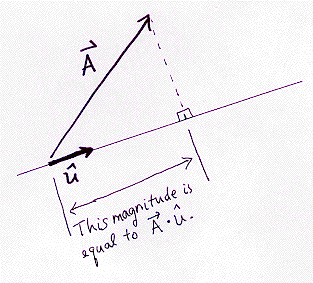 A⃗
û
This magnitude is
equal to A⃗ · û.